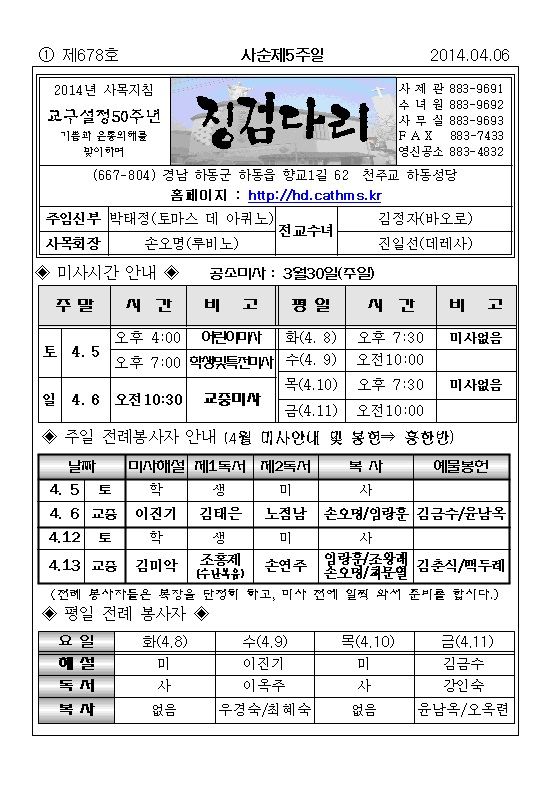 ① 제678호 사순제5주일 2014.04.06
2014년 사목지침
교구설정50주년
기쁨과 은총의해를
맞이하며
징검다리
사 제 관 883-9691
수 녀 원 883-9692
사 무 실 883-9693
F A X 883-7433
영신공소 883-4832
(667-804) 경남 하동군 하동읍 향교1길 62 천주교 하동성당
홈페이지 : http://hd.cathms.kr
주임신부 박태정(토마스 데 아퀴노) 전교수녀 김정자(바오로)
사목회장 손오명(루비노) 진일선(데레사)
◈ 미사시간 안내 ◈ 공소미사 : 3월30일(주일)
주 말 시 간 비 고 평 일 시 간 비 고
토 4. 5 오후 4:00 어린이미사 화(4. 8) 오후 7:30 미사없음
오후 7:00 학생및특전미사 수(4. 9) 오전10:00
일 4. 6 오전10:30 교중미사 목(4.10) 오후 7:30 미사없음
금(4.11) 오전10:00
◈ 주일 전례봉사자 안내 (4월 미사안내 및 봉헌⇒ 흥한반)
날짜 미사해설 제1독서 제2독서 복 사 예물봉헌
4. 5 토 학 생 미 사
4. 6 교중 이진기 김태은 노점남 손오명/임랑훈 김금수/윤남옥
4.12 토 학 생 미 사
4.13 교중 김미악 조홍제 (수난복음) 손연주 임랑훈/조왕래 손오명/최문열 김춘식/백두례
(전례 봉사자들은 복장을 단정히 하고, 미사 전에 일찍 와서 준비를 합시다.)
◈ 평일 전례 봉사자 ◈
요 일 화(4.8) 수(4.9) 목(4.10) 금(4.11)
해 설 미 이진기 미 김금수
독 서 사 이옥주 사 강인숙
복 사 없음 우경숙/최혜숙 없음 윤남옥/오옥련